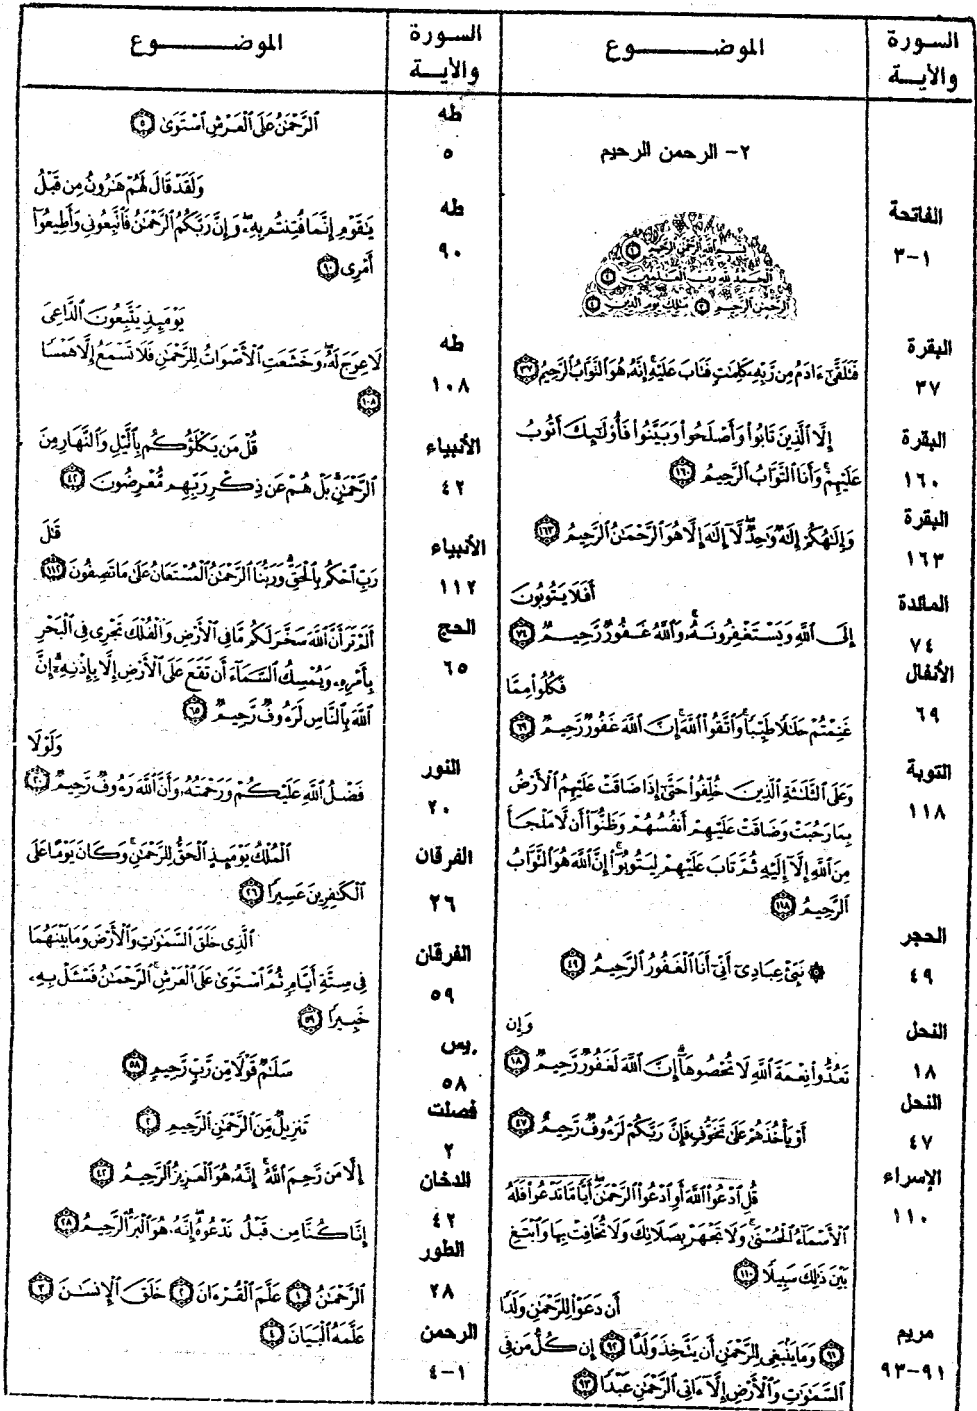 السورة
والآية
الموضــــــــوع
٢- الرحمن الرحيم
الفاتحة
١-٣
بِسْمِ ٱللَّهِ ٱلرَّحْمَٰنِ ٱلرَّحِيمِ ﴿١﴾
ٱلْحَمْدُ لِلَّهِ رَبِّ ٱلْعَٰلَمِينَ ﴿٢﴾
ٱلرَّحْمَٰنِ ٱلرَّحِيمِ ﴿٣﴾ مَٰلِكِ يَوْمِ ٱلدِّينِ ﴿٤﴾
البقرة
٣٧
فَتَلَقَّىٰٓ ءَادَمُ مِن رَّبِّهِۦ كَلِمَٰتٍ فَتَابَ عَلَيْهِ ۚ إِنَّهُۥ هُوَ ٱلتَّوَّابُ ٱلرَّحِيمُ ﴿٣٧﴾
البقرة
١٦٠
إِلَّا ٱلَّذِينَ تَابُوا۟ وَأَصْلَحُوا۟ وَبَيَّنُوا۟ فَأُو۟لَٰٓئِكَ أَتُوبُ
عَلَيْهِمْ ۚ وَأَنَا ٱلتَّوَّابُ ٱلرَّحِيمُ ﴿١٦٠﴾
البقرة
١٦٣
وَإِلَٰهُكُمْ إِلَٰهٌ وَٰحِدٌ ۖ لَّآ إِلَٰهَ إِلَّا هُوَ ٱلرَّحْمَٰنُ ٱلرَّحِيمُ ﴿١٦٣﴾
المائدة
٧٤
أَفَلَا يَتُوبُونَ
إِلَى ٱللَّهِ وَيَسْتَغْفِرُونَهُۥ ۚ وَٱللَّهُ غَفُورٌ رَّحِيمٌ ﴿٧٤﴾
الأنفال
٦٩
فَكُلُوا۟ مِمَّا
غَنِمْتُمْ حَلَٰلًا طَيِّبًا ۚ وَٱتَّقُوا۟ ٱللَّهَ ۚ إِنَّ ٱللَّهَ غَفُورٌ رَّحِيمٌ ﴿٦٩﴾
التوبة
١١٨
وَعَلَى ٱلثَّلَٰثَةِ ٱلَّذِينَ خُلِّفُوا۟ حَتَّىٰٓ إِذَا ضَاقَتْ عَلَيْهِمُ ٱلْأَرْضُ
بِمَا رَحُبَتْ وَضَاقَتْ عَلَيْهِمْ أَنفُسُهُمْ وَظَنُّوٓا۟ أَن لَّا مَلْجَأَ
مِنَ ٱللَّهِ إِلَّآ إِلَيْهِ ثُمَّ تَابَ عَلَيْهِمْ لِيَتُوبُوٓا۟ ۚ إِنَّ ٱللَّهَ هُوَ ٱلتَّوَّابُ
ٱلرَّحِيمُ ﴿١١٨﴾
الحجر
٤٩
۞ نَبِّئْ عِبَادِىٓ أَنِّىٓ أَنَا ٱلْغَفُورُ ٱلرَّحِيمُ ﴿٤٩﴾
النحل
١٨
وَإِن
تَعُدُّوا۟ نِعْمَةَ ٱللَّهِ لَا تُحْصُوهَآ ۗ إِنَّ ٱللَّهَ لَغَفُورٌ رَّحِيمٌ ﴿١٨﴾
النحل
٤٧
أَوْ يَأْخُذَهُمْ عَلَىٰ تَخَوُّفٍ فَإِنَّ رَبَّكُمْ لَرَءُوفٌ رَّحِيمٌ ﴿٤٧﴾
الإسراء
١١٠
قُلِ ٱدْعُوا۟ ٱللَّهَ أَوِ ٱدْعُوا۟ ٱلرَّحْمَٰنَ ۖ أَيًّا مَّا تَدْعُوا۟ فَلَهُ
ٱلْأَسْمَآءُ ٱلْحُسْنَىٰ ۚ وَلَا تَجْهَرْ بِصَلَاتِكَ وَلَا تُخَافِتْ بِهَا وَٱبْتَغِ
بَيْنَ ذَٰلِكَ سَبِيلًا ﴿١١٠﴾
مريم
٩١-٩٣
أَن دَعَوْا۟ لِلرَّحْمَٰنِ وَلَدًا
﴿٩١﴾ وَمَا يَنۢبَغِى لِلرَّحْمَٰنِ أَن يَتَّخِذَ وَلَدًا ﴿٩٢﴾ إِن كُلُّ مَن فِى
ٱلسَّمَٰوَٰتِ وَٱلْأَرْضِ إِلَّآ ءَاتِى ٱلرَّحْمَٰنِ عَبْدًا ﴿٩٣﴾
السورة
والآية
الموضــــــــوع
طه
٥
ٱلرَّحْمَٰنُ عَلَى ٱلْعَرْشِ ٱسْتَوَىٰ ﴿٥﴾
طه
٩٠
وَلَقَدْ قَالَ لَهُمْ هَٰرُونُ مِن قَبْلُ
يَٰقَوْمِ إِنَّمَا فُتِنتُم بِهِۦ ۖ وَإِنَّ رَبَّكُمُ ٱلرَّحْمَٰنُ فَٱتَّبِعُونِى وَأَطِيعُوٓا۟
أَمْرِى ﴿٩٠﴾
طه
١٠٨
يَوْمَئِذٍ يَتَّبِعُونَ ٱلدَّاعِىَ
لَا عِوَجَ لَهُۥ ۖ وَخَشَعَتِ ٱلْأَصْوَاتُ لِلرَّحْمَٰنِ فَلَا تَسْمَعُ إِلَّا هَمْسًا
﴿١٠٨﴾
الأنبياء
٤٢
قُلْ مَن يَكْلَؤُكُم بِٱلَّيْلِ وَٱلنَّهَارِ مِنَ
ٱلرَّحْمَٰنِ ۗ بَلْ هُمْ عَن ذِكْرِ رَبِّهِم مُّعْرِضُونَ ﴿٤٢﴾
الأنبياء
١١٢
قَٰلَ
رَبِّ ٱحْكُم بِٱلْحَقِّ ۗ وَرَبُّنَا ٱلرَّحْمَٰنُ ٱلْمُسْتَعَانُ عَلَىٰ مَا تَصِفُونَ ﴿١١٢﴾
الحج
٦٥
أَلَمْ تَرَ أَنَّ ٱللَّهَ سَخَّرَ لَكُم مَّا فِى ٱلْأَرْضِ وَٱلْفُلْكَ تَجْرِى فِى ٱلْبَحْرِ
بِأَمْرِهِۦ وَيُمْسِكُ ٱلسَّمَآءَ أَن تَقَعَ عَلَى ٱلْأَرْضِ إِلَّا بِإِذْنِهِۦٓ ۗ إِنَّ
ٱللَّهَ بِٱلنَّاسِ لَرَءُوفٌ رَّحِيمٌ ﴿٦٥﴾
النور
٢٠
وَلَوْلَا
فَضْلُ ٱللَّهِ عَلَيْكُمْ وَرَحْمَتُهُۥ وَأَنَّ ٱللَّهَ رَءُوفٌ رَّحِيمٌ ﴿٢٠﴾
الفرقان
٢٦
ٱلْمُلْكُ يَوْمَئِذٍ ٱلْحَقُّ لِلرَّحْمَٰنِ ۚ وَكَانَ يَوْمًا عَلَى
ٱلْكَٰفِرِينَ عَسِيرًا ﴿٢٦﴾
الفرقان
٥٩
ٱلَّذِى خَلَقَ ٱلسَّمَٰوَٰتِ وَٱلْأَرْضَ وَمَا بَيْنَهُمَا
فِى سِتَّةِ أَيَّامٍ ثُمَّ ٱسْتَوَىٰ عَلَى ٱلْعَرْشِ ۚ ٱلرَّحْمَٰنُ فَسْـَٔلْ بِهِۦ
خَبِيرًا ﴿٥٩﴾
يس
٥٨
سَلَٰمٌ قَوْلًا مِّن رَّبٍّ رَّحِيمٍ ﴿٥٨﴾
فصلت
٢
تَنزِيلٌ مِّنَ ٱلرَّحْمَٰنِ ٱلرَّحِيمِ ﴿٢﴾
الدخان
٤٢
إِلَّا مَن رَّحِمَ ٱللَّهُ ۚ إِنَّهُۥ هُوَ ٱلْعَزِيزُ ٱلرَّحِيمُ ﴿٤٢﴾
الطور
٢٨
إِنَّا كُنَّا مِن قَبْلُ نَدْعُوهُ ۖ إِنَّهُۥ هُوَ ٱلْبَرُّ ٱلرَّحِيمُ ﴿٢٨﴾
الرحمن
١-٤
ٱلرَّحْمَٰنُ ﴿١﴾ عَلَّمَ ٱلْقُرْءَانَ ﴿٢﴾ خَلَقَ ٱلْإِنسَٰنَ ﴿٣﴾
عَلَّمَهُ ٱلْبَيَانَ ﴿٤﴾